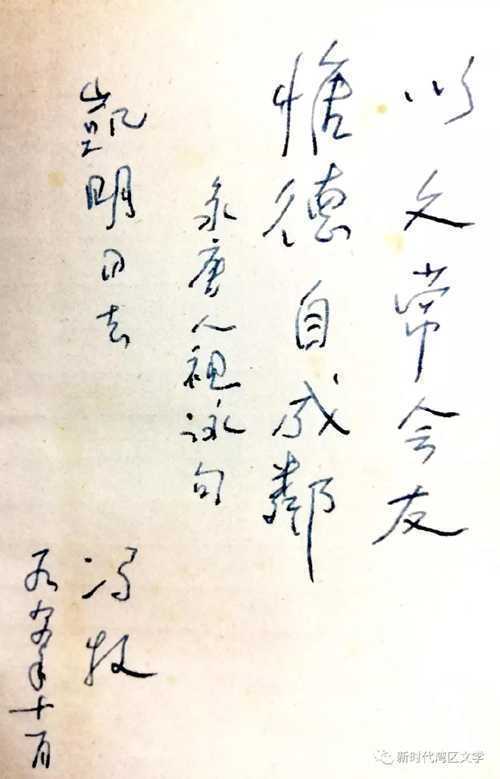 以文常会友
惟德自成鄰
录唐人祖詠句
凱明同志
冯牧
年十月
新时代湾区文学